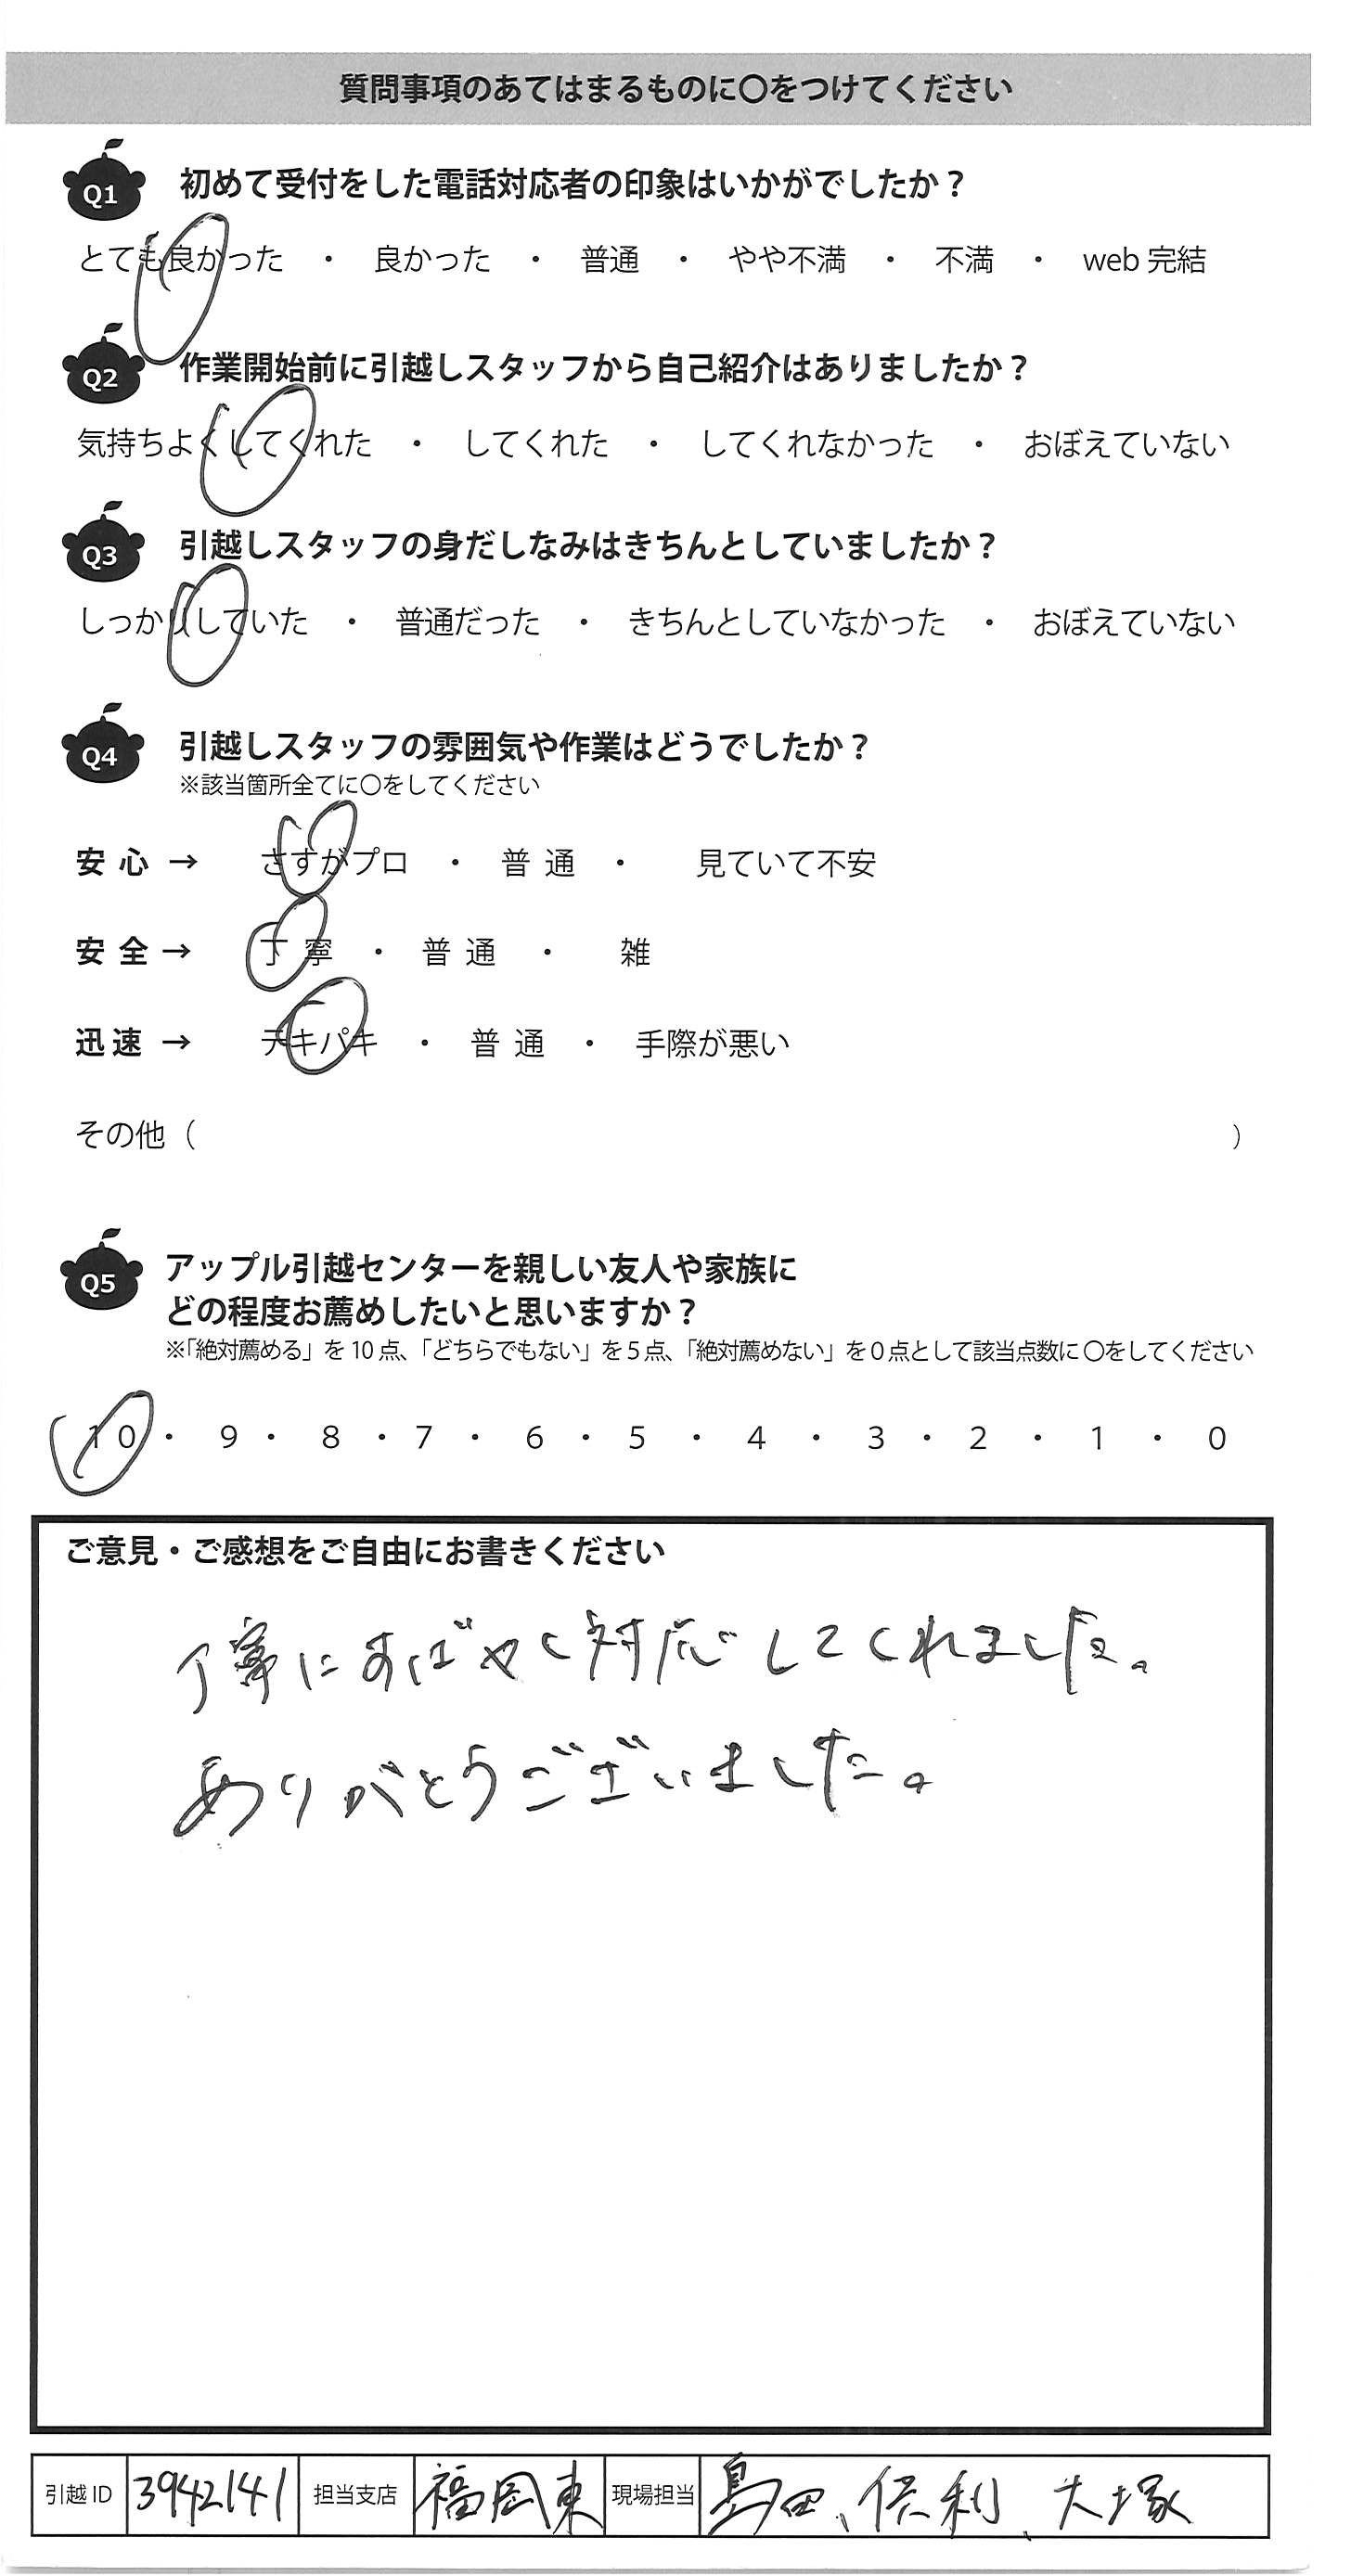 質問事項のあてはまるものに〇をつけてください
Q1 初めて受付をした電話対応者の印象はいかがでしたか？
とても良かった ・ 良かった ・ 普通 ・ やや不満 ・ 不満 ・ web 完結
Q2 作業開始前に引越しスタッフから自己紹介はありましたか？
気持ちよくしてくれた ・ してくれた ・ してくれなかった ・ おぼえていない
Q3 引越しスタッフの身だしなみはきちんとしていましたか？
しっかりしていた ・ 普通だった ・ きちんとしていなかった ・ おぼえていない
Q4 引越しスタッフの雰囲気や作業はどうでしたか？
※該当箇所全てに〇をしてください
安心 → さすがプロ ・ 普通 ・ 見ていて不安
安全 → 丁寧 ・ 普通 ・ 雑
迅速 → テキパキ ・ 普通 ・ 手際が悪い
その他（ ）
Q5 アップル引越センターを親しい友人や家族に
どの程度お薦めしたいと思いますか？
※「絶対薦める」を 10 点、「どちらでもない」を 5 点、「絶対薦めない」を 0 点として該当点数に 〇をしてください
10 ・ 9 ・ 8 ・ 7 ・ 6 ・ 5 ・ 4 ・ 3 ・ 2 ・ 1 ・ 0
ご意見・ご感想をご自由にお書きください
丁寧にすばやく対応してくれました。
ありがとうございました。
引越 ID 3942141 担当支店 福岡東 現場担当 島田、保利、大塚